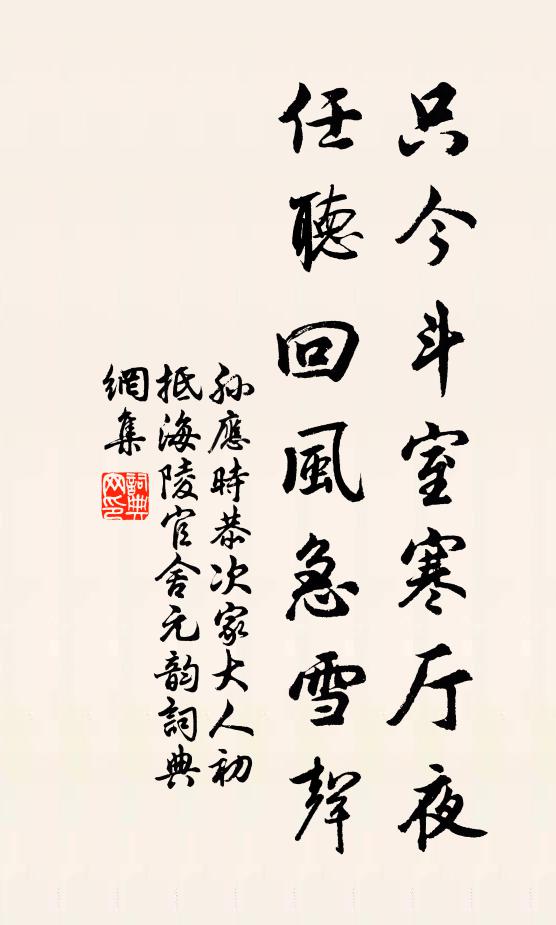 只今斗室寒厅夜
任聽回風急雪聲
孫應時恭次家大人初
抵海陵官舍元韵詞典
網集
詞典網印